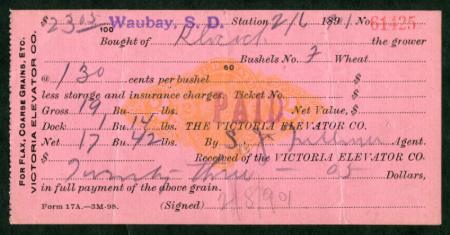 FOR FLAX, COARSE GRAINS, ETC.
VICTORIA ELEVATOR CO.
$23 05/100 Waubay, S. D. Station 2/6 1891. No 61425
Bought of the grower
Bushels No. 60 Wheat
@ 1 30 cents per bushel $
less storage and insurance charges. Ticket No. $
Gross 19 Bu. lbs. Net Value, $
PAID
Dock 1 Bu. 14 lbs. THE VICTORIA ELEVATOR CO.
Net 17 Bu. 42 lbs. By Agent.
$ Received of the VICTORIA ELEVATOR CO.
Twenty three 05 Dollars,
in full payment of the above grain.
Form 17A.—3M-98. (Signed) 2/8/901